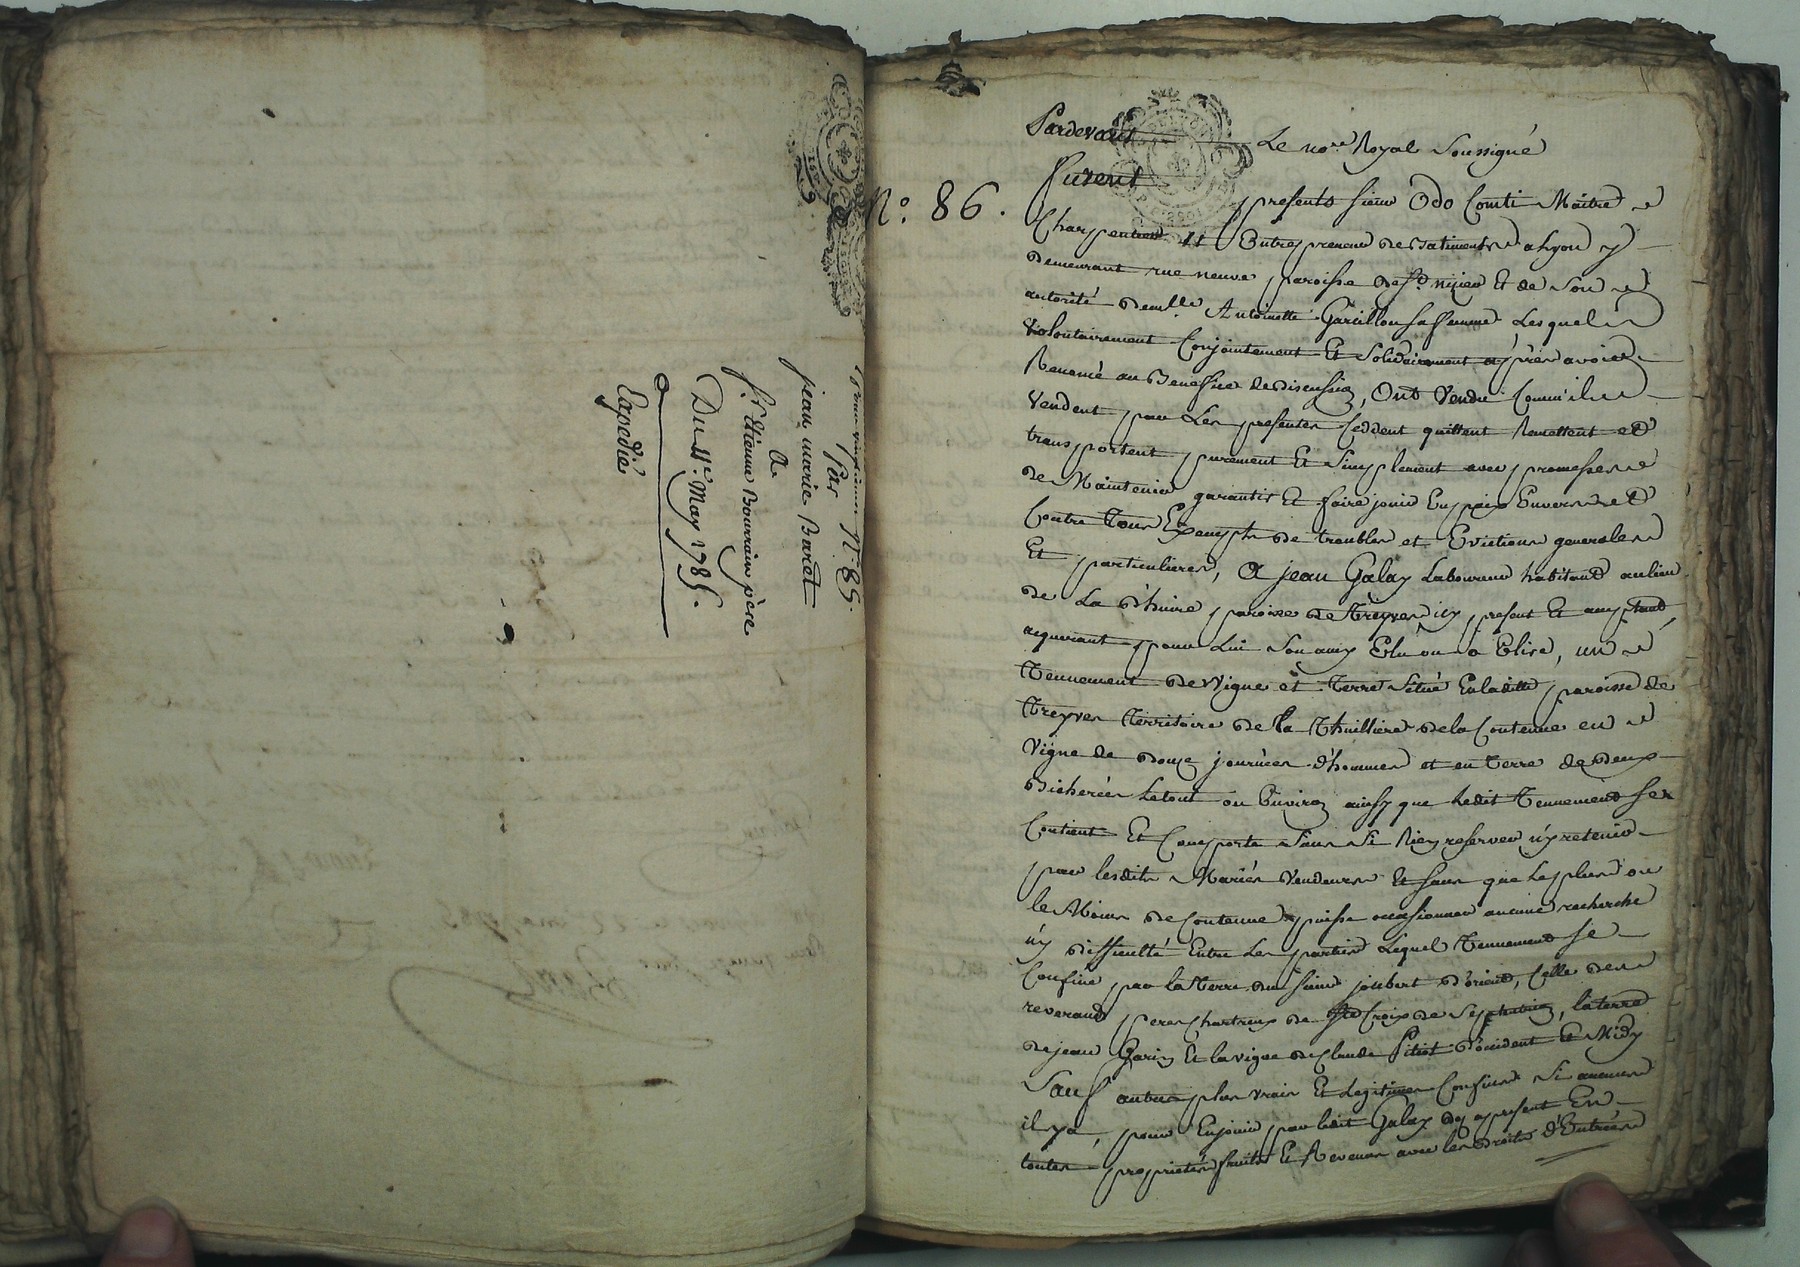 N.° 85.
Par
jean marie Baret
a
sr. Etienne Bourrain père
Du 11e. May 1785.
Expedié
N°. 86.
Pardevant Le nore Royal Soussigné
Furent presents sieur Odo Comti Maitre
Charpentier Et Entrepreneur de Batiments a Lyon y
demeurant rue neuve paroisse de St. nizier Et de Son
autorité demlle. Antoinette Garcillon sa femme Lesquels
volontairement Conjointement Et Solidairement apprès avoir
Renoncé au Benefice de discussion, Ont Vendu Comm'ils
Vendent par Les presentes Ceddent quittent Remettent et
transportent purement Et Simplement avec promesse
de Maintenir garantir Et faire jouir En paix Envers et
Contre Tous Exempts de troubles et Evictions generales
Et particulieres, a jean Galay Laboureur habitant au lieu
de La paroisse de Treyves icy present Et acceptant
aquerant pour Lui Son amy Elu ou a Elire, un
Tennement de Vigne et Terre Situé En laditte paroisse de
Treyves Territoire de la Thuilliere de la Contenue en
Vigne de Douze journées d'hommes et en Terre de Deux
Bicherées Le tout ou Environ ainsy que Ledit Tennement se
Contient Et Comporte Sans Si Rien reserver n'y retenir
par lesdits Mariés Vendeurs Et sans que Le plus ou
le Moins de Contenue puisse occasionner aucune recherche
n'y difficulté Entre Les parties Lequel Tennement se
Confine par la Terre du sieur joubert d'orient, Celle des
reverand peres Chartreux de Ste Croix de la terre
de jean Garin Et la vigne de Claude Pitiot d'occident Et Midy
Sauf autres plus vrais Et Legitimes Confins Si aucuns
il y a, pour En jouir par Ledit Galay des apresent En
toutes proprietés fruits Et Revenus avec les Droits d'Entrées